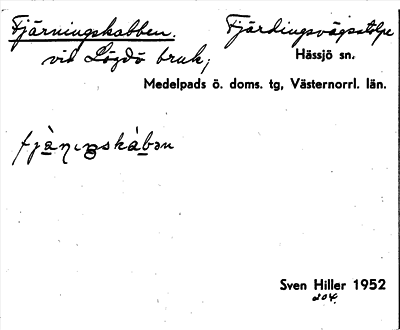 Fjärningskabben. Fjärdingsvägsstolpe
vid Lögdö bruk, Hässjö sn.
Medelpads ö. doms. tg, Västernorrl. län.
fjä̀ηιŋskáb̲ən
Sven Hiller 1952